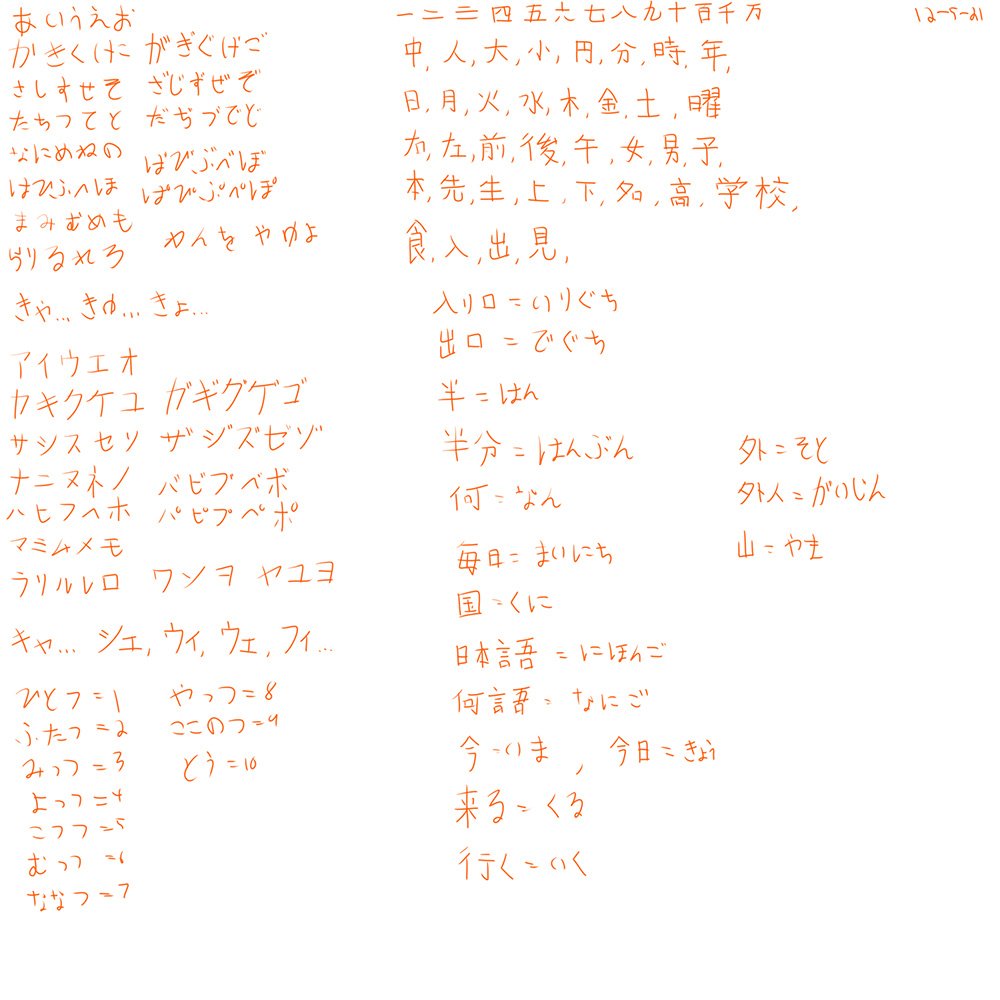 あいうえお
かきくけこ がぎぐげご
さしすせそ ざじずぜぞ
たちつてと だぢづでど
なにぬねの
はひふへほ ばびぶべぼ
ぱぴぷぺぽ
まみむめも
らりるれろ わんを やゆよ
きゃ... きゅ... きょ...
アイウエオ
カキクケコ ガギグゲゴ
サシスセソ ザジズゼゾ
ナニヌネノ バビブベボ
ハヒフヘホ パピプペポ
マミムメモ
ラリルレロ ワンヲ ヤユヨ
キャ... シェ, ウィ, ウェ, フィ...
ひとつ=1 やっつ=8
ふたつ=2 ここのつ=9
みっつ=3 とう=10
よっつ=4
こつつ=5
むっつ=6
ななつ=7
一二三四五六七八九十百千万 12-5-21
中, 人, 大, 小, 円, 分, 時, 年,
日, 月, 火, 水, 木, 金, 土, 曜
右, 左, 前, 後, 午, 女, 男, 子,
本, 先, 生, 上, 下, 名, 高, 学校,
食, 入, 出, 見,
入り口=いりぐち
出口=でぐち
半=はん
半分=はんぶん 外=そと
何=なん 外人=がいじん
毎日=まいにち 山=やま
国=くに
日本語=にほんご
何語=なにご
今=いま, 今日=きょう
来る=くる
行く=いく